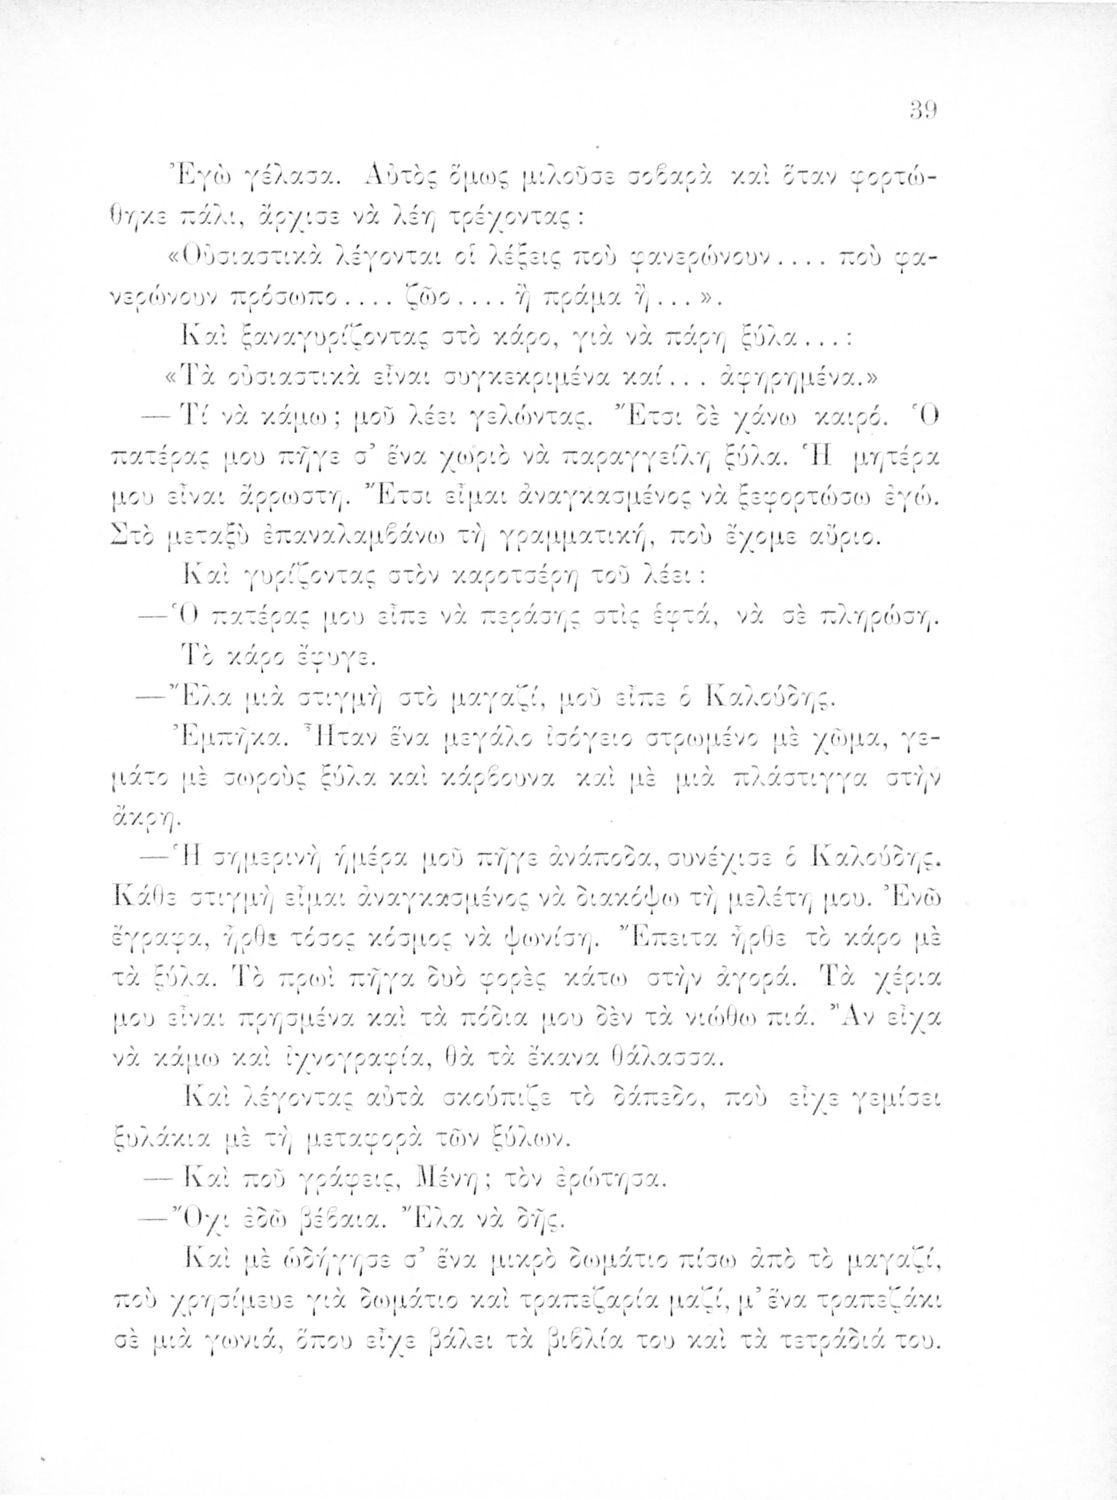 39
Ἐγὼ γέλασα. Αὐτὸς ὅμως μιλοῦσε σοβαρὰ καὶ ὅταν φορτώ-
θηκε πάλι, ἄρχισε νὰ λέῃ τρέχοντας :
«Οὐσιαστικὰ λέγονται οἱ λέξεις ποὺ φανερώνουν.... ποὺ φα-
νερώνουν πρόσωπο.... ζῶο.... ἢ πράμα ἢ...».
Καὶ ξαναγυρίζοντας στὸ κάρο, γιὰ νὰ πάρῃ ξύλα...:
«Τὰ οὐσιαστικὰ εἶναι συγκεκριμένα καί... ἀφηρημένα.»
— Τί νὰ κάμω; μοῦ λέει γελώντας. Ἔτσι δὲ χάνω καιρό. Ὁ
πατέρας μου πῆγε σ’ ἕνα χωριὸ νὰ παραγγείλῃ ξύλα. Ἡ μητέρα
μου εἶναι ἄρρωστη. Ἔτσι εἶμαι ἀναγκασμένος νὰ ξεφορτώσω ἐγώ.
Στὸ μεταξὺ ἐπαναλαμβάνω τὴ γραμματική, ποὺ ἔχομε αὔριο.
Καὶ γυρίζοντας στὸν καροτσέρη τοῦ λέει :
—Ὁ πατέρας μου εἶπε νὰ περάσῃς στὶς ἑφτά, νὰ σὲ πληρώσῃ.
Τὸ κάρο ἔφυγε.
—Ἔλα μιὰ στιγμὴ στὸ μαγαζί, μοῦ εἶπε ὁ Καλούδης.
Ἐμπῆκα. Ἦταν ἕνα μεγάλο ἰσόγειο στρωμένο μὲ χῶμα, γε-
μάτο μὲ σωροὺς ξύλα καὶ κάρβουνα καὶ μὲ μιὰ πλάστιγγα στὴν
ἄκρη.
—Ἡ σημερινὴ ἡμέρα μοῦ πῆγε ἀνάποδα, συνέχισε ὁ Καλούδης.
Κάθε στιγμὴ εἶμαι ἀναγκασμένος νὰ διακόψω τὴ μελέτη μου. Ἐνῶ
ἔγραφα, ἦρθε τόσος κόσμος νὰ ψωνίσῃ. Ἔπειτα ἦρθε τὸ κάρο μὲ
τὰ ξύλα. Τὸ πρωὶ πῆγα δυὸ φορὲς κάτω στὴν ἀγορά. Τὰ χέρια
μου εἶναι πρησμένα καὶ τὰ πόδια μου δὲν τὰ νιώθω πιά. Ἂν εἶχα
νὰ κάμω καὶ ἰχνογραφία, θὰ τὰ ἔκανα θάλασσα.
Καὶ λέγοντας αὐτὰ σκούπιζε τὸ δάπεδο, ποὺ εἶχε γεμίσει
ξυλάκια μὲ τὴ μεταφορὰ τῶν ξύλων.
— Καὶ ποῦ γράφεις, Μένη; τὸν ἐρώτησα.
—Ὄχι ἐδῶ βέβαια. Ἔλα νὰ δῇς.
Καὶ μὲ ὡδήγησε σ’ ἕνα μικρὸ δωμάτιο πίσω ἀπὸ τὸ μαγαζί,
ποὺ χρησίμευε γιὰ δωμάτιο καὶ τραπεζαρία μαζί, μ’ ἕνα τραπεζάκι
σὲ μιὰ γωνιά, ὅπου εἶχε βάλει τὰ βιβλία του καὶ τὰ τετράδιά του.